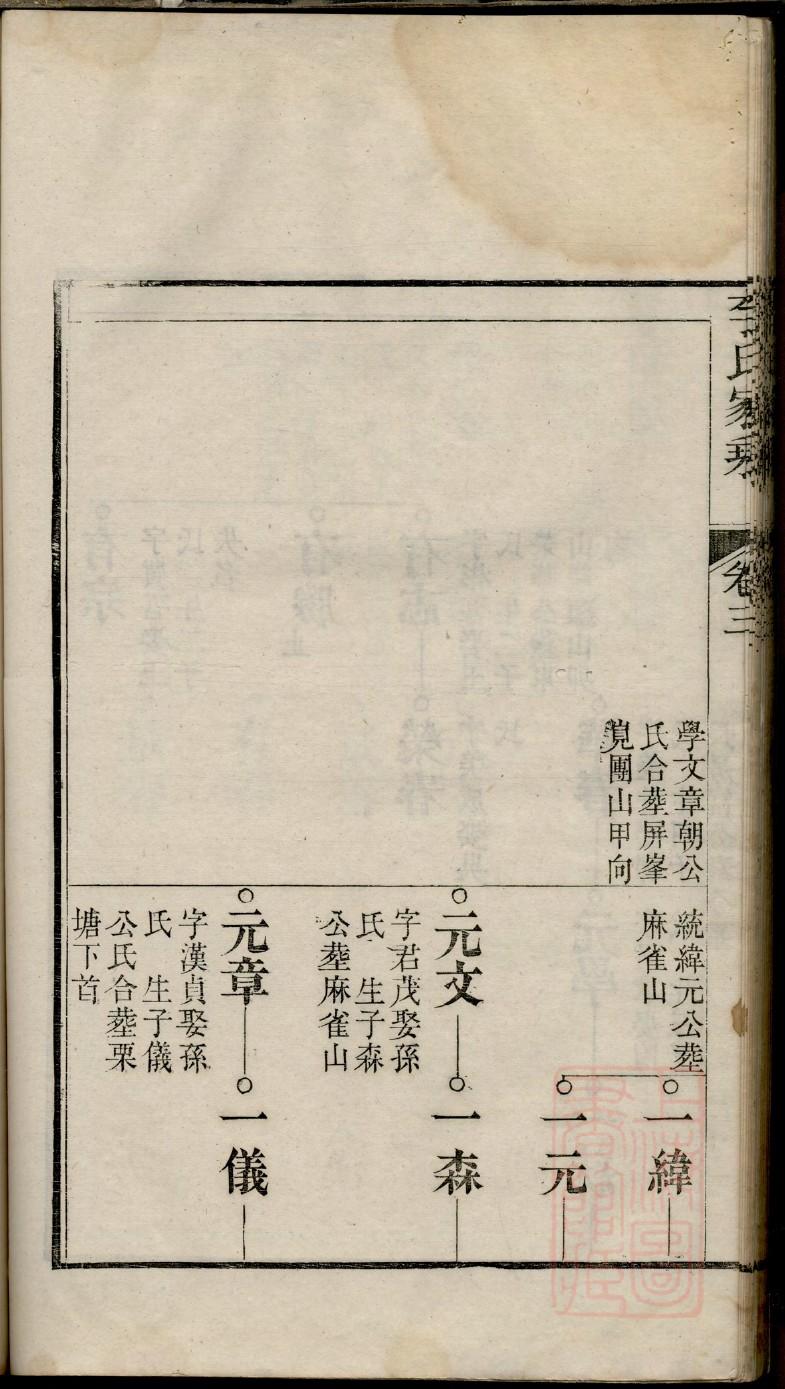 氏家乘
卷三
學文章朝公
氏合塟屏峯
覓團山甲向
統緯元公塟
麻雀山
一緯
一元
元文
字君茂娶孫
氏 生子森
公塟麻雀山
一森
元章
字漢貞娶孫
氏 生子儀
公氏合塟栗
塘下首
一儀